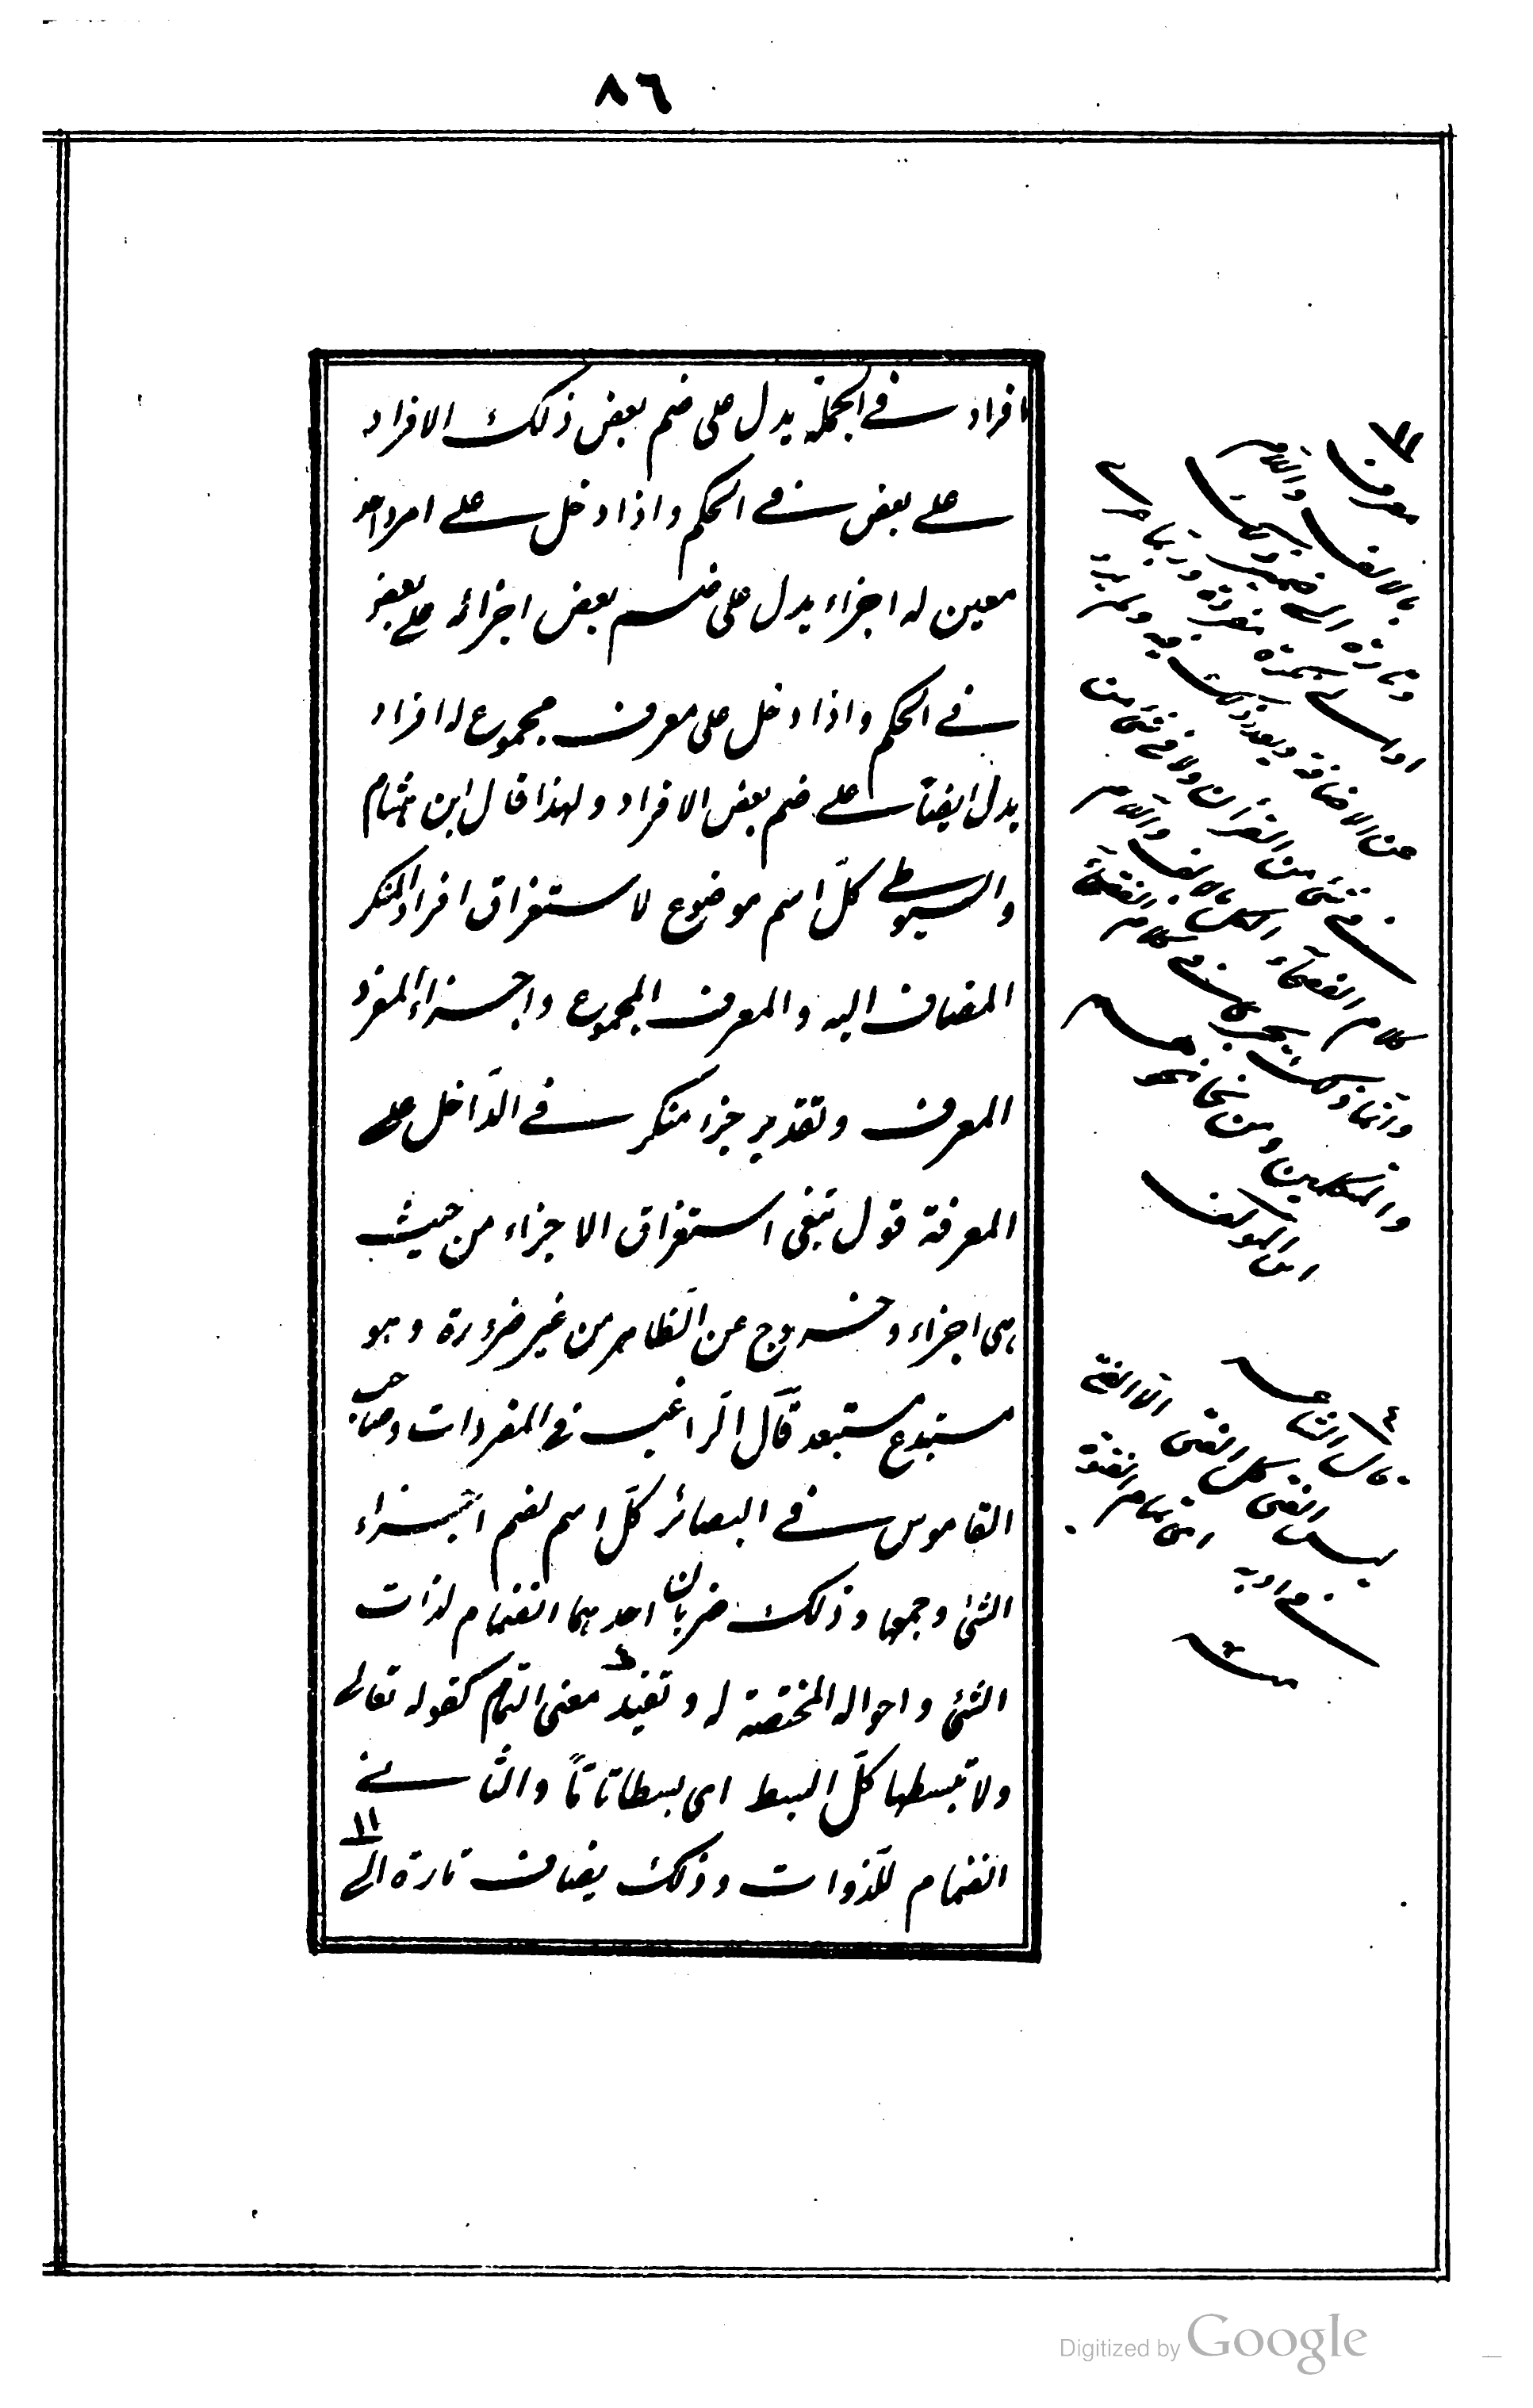 ٨٦
افراد في الجملة يدل على ضم بعض ذلك الافراد
على بعض في الحكم واذا دخل على امر واحد
معين له اجزاء يدل على ضم بعض اجزائه على بعض
في الحكم واذا دخل على معرف مجموع له افراد
يدل ايضا على ضم بعض الافراد ولهذا قال ابن هشام
والسيوطي كلّ اسم موضوع لاستغراق افراد المنكر
المضاف اليه والمعرف المجموع واجزاء المفرد
المعرف وتقدير جزء منكر في الدّاخل على
المعرفة قول بنفي استغراق الاجزاء من حيث
هى اجزاء وخروج عن الظاهر من غير ضرورة وهو
مستبدع مستبعد قال الرّاغب في المفردات وصاحب
القاموس في البصائر كلّ اسم لضم اجزاء
الشئ وجمعها وذلك ضربان احدهما انضمام لذات
الشئ واحواله المختصة له وتفيد معنى التمام كقوله تعالى
ولا تبسطها كلّ البسط اى بسطا تامّا والثّاني
انضمام للذوات وذلك يضاف تارة الى
١١
معرف
بالالف واللام
وتارة الى ضمير ذلك
من الاضافة ويقدر ذلك فيه ولم يرد
في شئ من القرآن ولا في شئ من
كلام الفصحاء الكل بالالف واللام
وانما ذلك يجرى في كلام الفقهاء
والمتكلمين ومن نحا نحوهم
٤ قال الشاعر
ليس الفتى كل الفتى الا الفتى
في ادبه
Digitized by Google